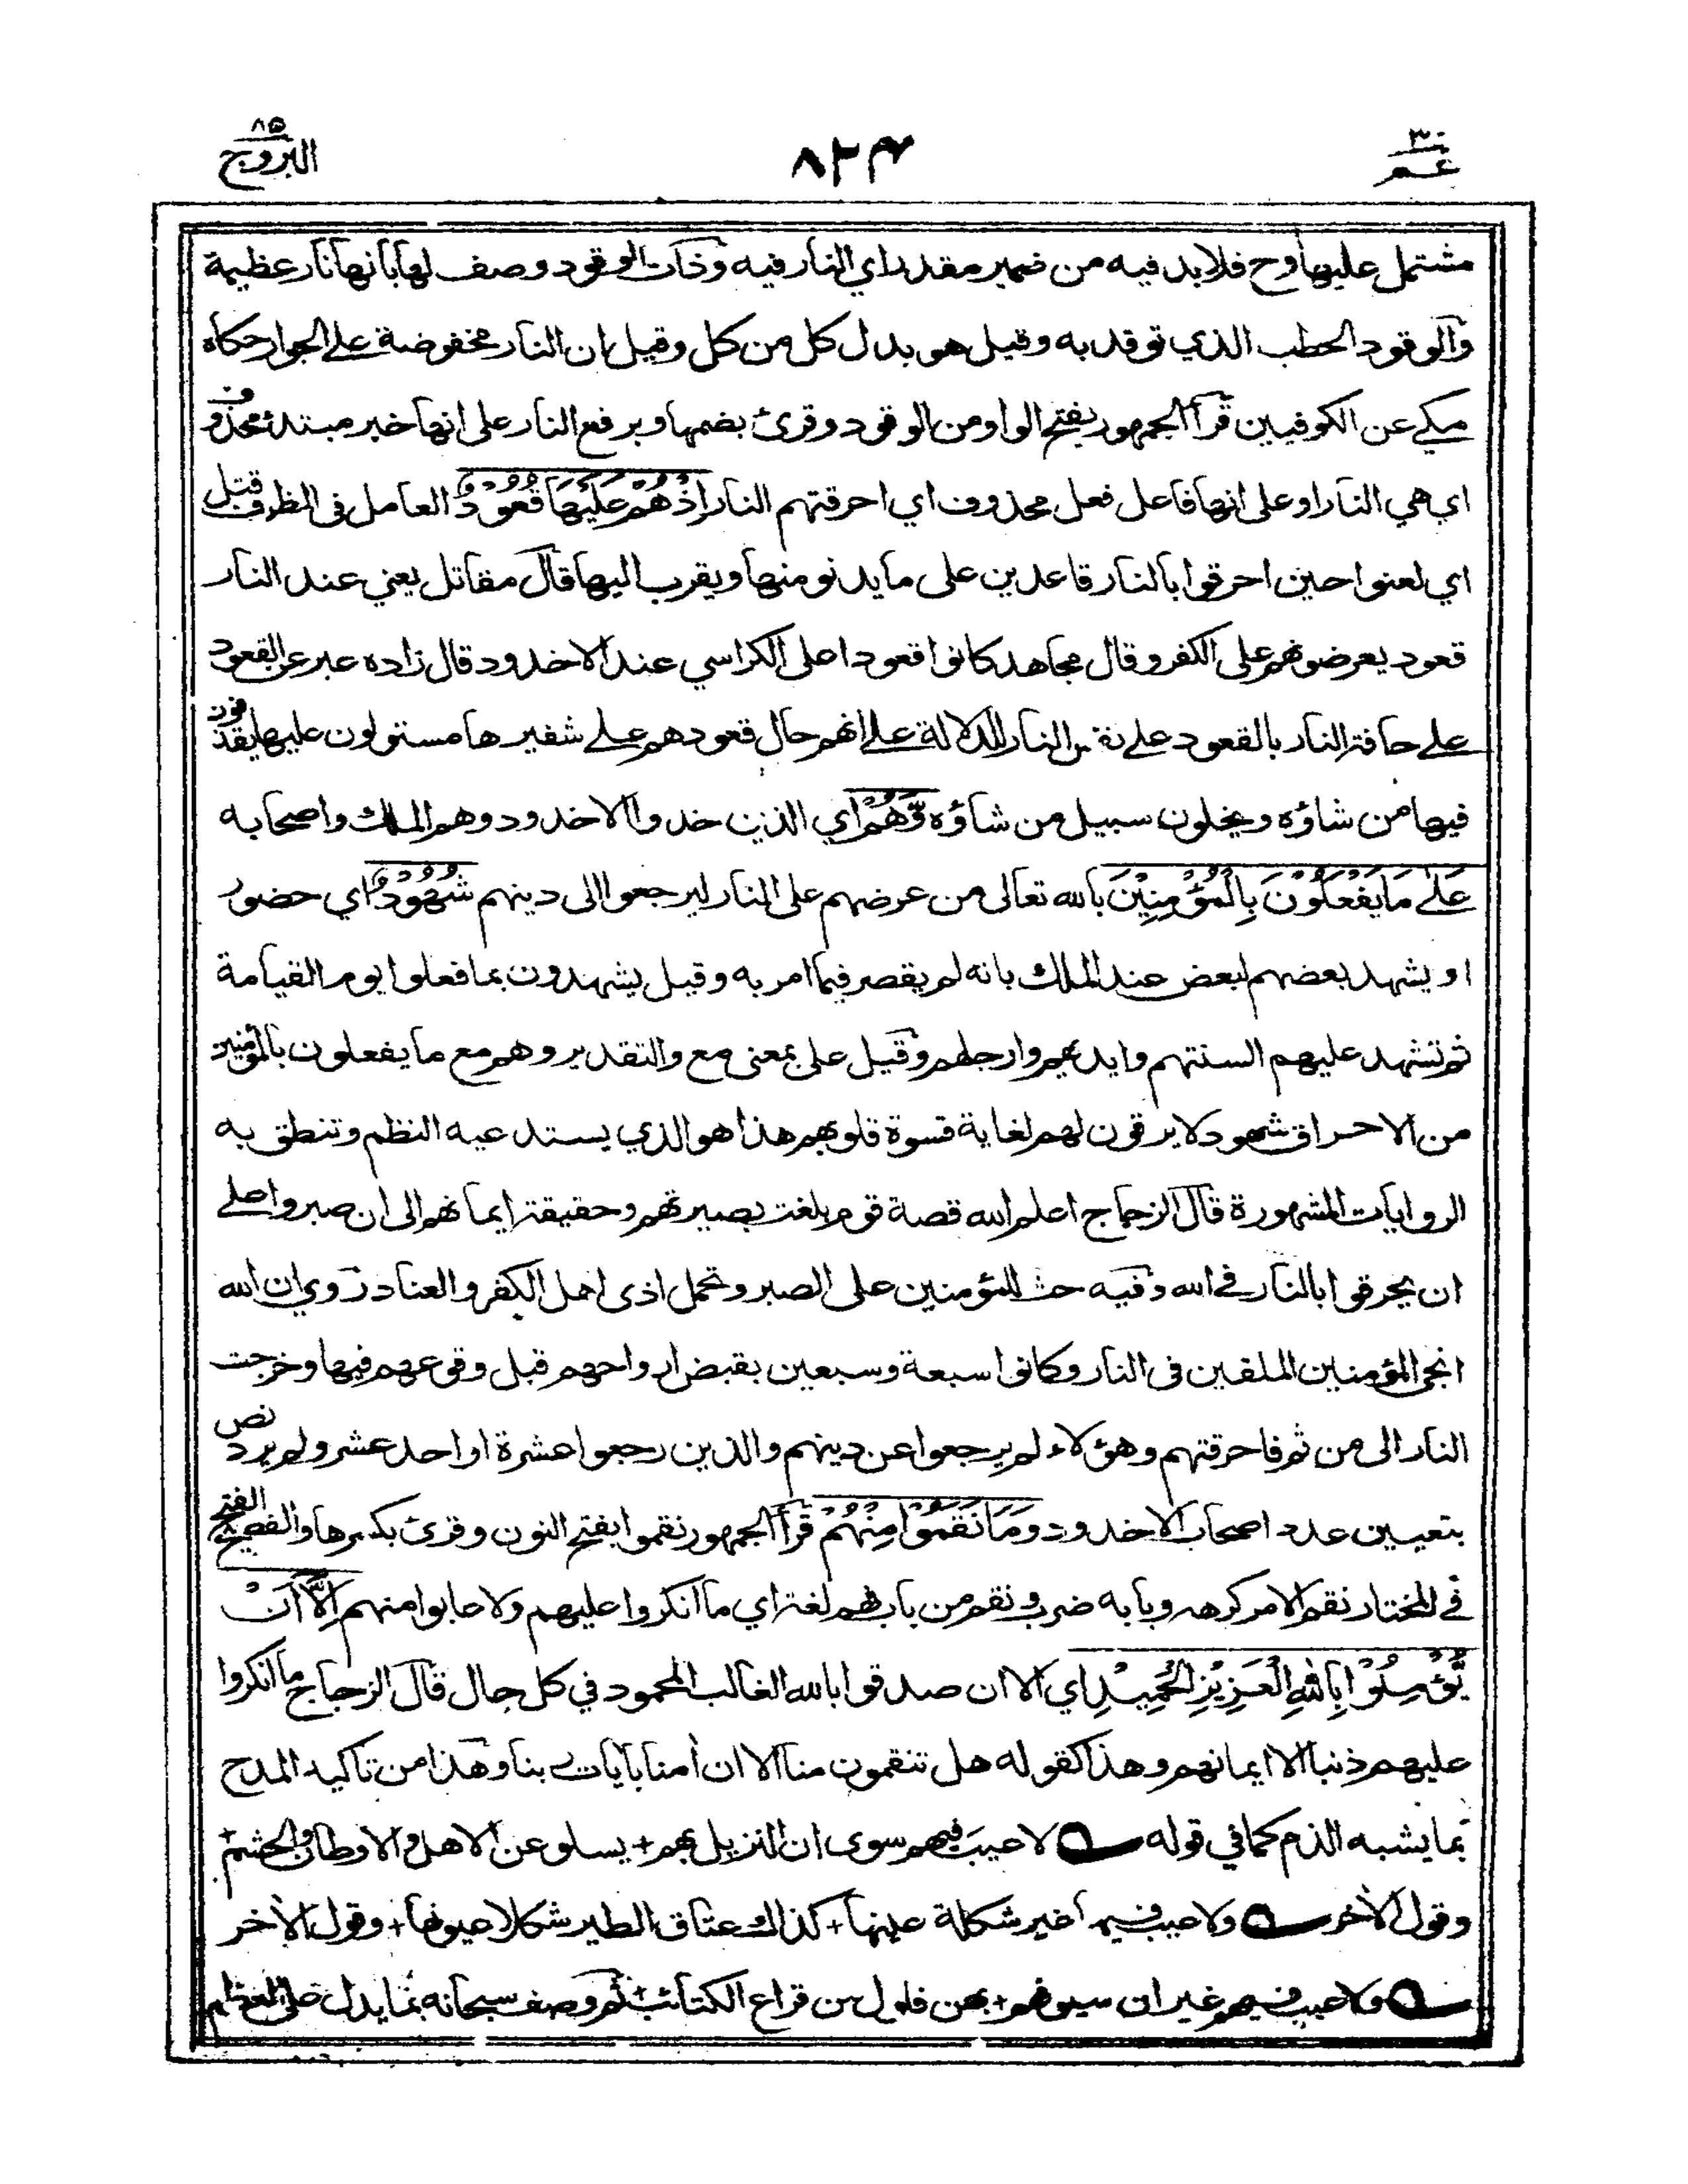 ٣٠ عم
٨٢٤
٨٥ البروج
مشتمل عليها وح فلا بد فيه من ضمير مقدر اي النار فيه وذات الوقود وصف لها بانها نار عظيمة
والوقود الحطب الذي توقد به وقيل هو بدل كل من كل وقيل ان النار مخفوضة على الجوار حكاه
مكي عن الكوفيين قرأ الجمهور بفتح الواو من الوقود وقرئ بضمها وبرفع النار على انها خبر مبتدء محذوف
اي هي النار او على انها فاعل فعل محذوف اي احرقتهم النار إِذْ هُمْ عَلَيْهَا قُعُودٌ العامل في الظرف قتل
اي لعنوا حين احرقوا بالنار قاعدين على ما يدنو منها ويقرب اليها قال مقاتل يعني عند النار
قعود يعرضونهم على الكفر وقال مجاهد كانوا قعودا على الكراسي عند الاخدود قال زاده عبر عن القعود
على حافة النار بالقعود على نفس النار للدلالة على انهم حال قعودهم على شفيرها مستولون عليها يقذفون
فيها من شاؤه ويخلون سبيل من شاؤه وَّهُمْ اي الذين خدوا الاخدود وهم الملك واصحابه
عَلَىٰ مَا يَفْعَلُوْنَ بِالْمُؤْمِنِيْنَ بالله تعالى من عرضهم على النار ليرجعوا الى دينهم شُهُودٌ اي حضور
او يشهد بعضهم لبعض عند الملك بانه لم يقصر فيما امر به وقيل يشهدون بما فعلوا يوم القيامة
ثم تشهد عليهم السنتهم وايديهم وارجلهم وقيل على بمعنى مع والتقدير وهم مع ما يفعلون بالمؤمنين
من الاحراق شهود لا يرقون لهم لغاية قسوة قلوبهم هذا هو الذي يستدعيه النظم وتنطق به
الروايات المشهورة قال الزجاج اعلم الله قصة قوم بلغت بصيرتهم وحقيقة ايمانهم الى ان صبروا على
ان يحرقوا بالنار في الله وفيه حث للمؤمنين على الصبر وتحمل اذى اهل الكفر والعناد روي ان الله
انجى المؤمنين الملقين في النار وكانوا سبعة وسبعين بقبض ارواحهم قبل وقوعهم فيها وخرجت
النار الى من ثم فاحرقتهم وهؤلاء لم يرجعوا عن دينهم والذين رجعوا عشرة او احد عشر ولم يرد نص
بتعيين عدد اصحاب الاخدود وَمَا نَقَمُوْا مِنْهُمْ قرأ الجمهور نقموا بفتح النون وقرئ بكسرها والفصيح الفتح
في المختار نقم الامر كرهه وبابه ضرب ونقم من باب فهم لغة اي ما انكروا عليهم ولا عابوا منهم اِلَّا اَنْ
يُّؤْمِنُوْا بِاللّٰهِ الْعَزِيْزِ الْحَمِيْدِ اي الا ان صدقوا بالله الغالب المحمود في كل حال قال الزجاج ما انكروا
عليهم ذنبا الا ايمانهم وهذا كقوله هل تنقمون منا الا ان امنا بآيات ربنا وهذا من تاكيد المدح
بما يشبه الذم كما في قوله لا عيب فيهم سوى ان النزيل بهم + يسلو عن الاهل والاوطان والحشم +
وقول الاخر ولا عيب فيها غير شكلة عينها + كذاك عتاق الطير شكلا عيونها + وقول الاخر
ولا عيب فيهم غير ان سيوفهم + بهن فلول من قراع الكتائب + ثم وصف سبحانه بما يدل على العظم